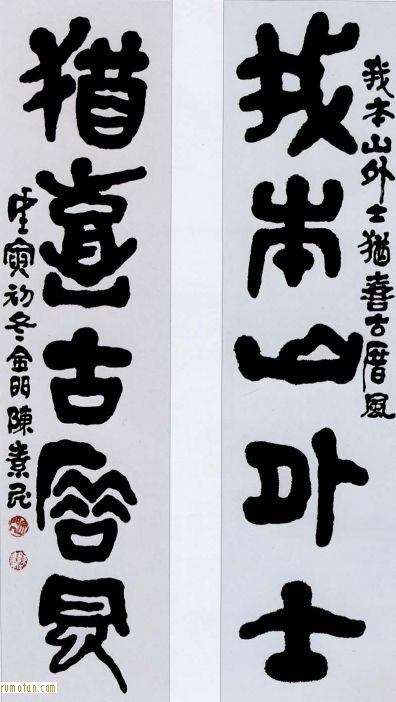 我本山外士
我本山外士猶喜古曆風
猶喜古曆風
壬寅初冬金門陳素民
rumotan.com